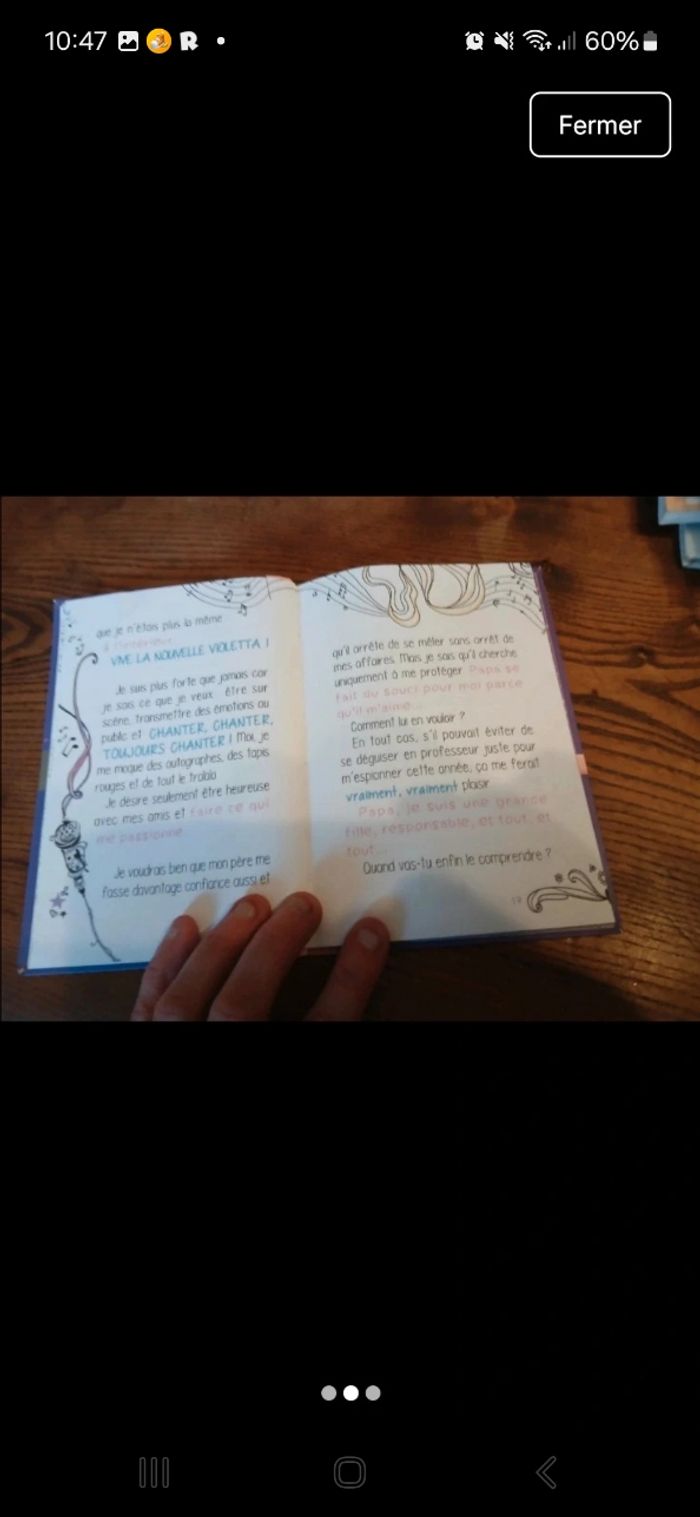 10:47
R
60%
Fermer
que je n'étais plus la même
à l'intérieur.
VIVE LA NOUVELLE VIOLETTA !
Je suis plus forte que jamais car
je sais ce que je veux : être sur
scène, transmettre des émotions au
public et CHANTER, CHANTER,
TOUJOURS CHANTER ! Moi, je
me moque des autographes, des tapis
rouges et de tout le tralala.
Je désire seulement être heureuse
avec mes amis et faire ce qui
me passionne.
Je voudrais bien que mon père me
fasse davantage confiance aussi et
qu'il arrête de se mêler sans arrêt de
mes affaires. Mais je sais qu'il cherche
uniquement à me protéger. Papa se
fait du souci pour moi parce
qu'il m'aime...
Comment lui en vouloir ?
En tout cas, s'il pouvait éviter de
se déguiser en professeur juste pour
m'espionner cette année, ça me ferait
vraiment, vraiment plaisir.
Papa, je suis une grande
fille, responsable, et tout, et
tout...
Quand vas-tu enfin le comprendre ?